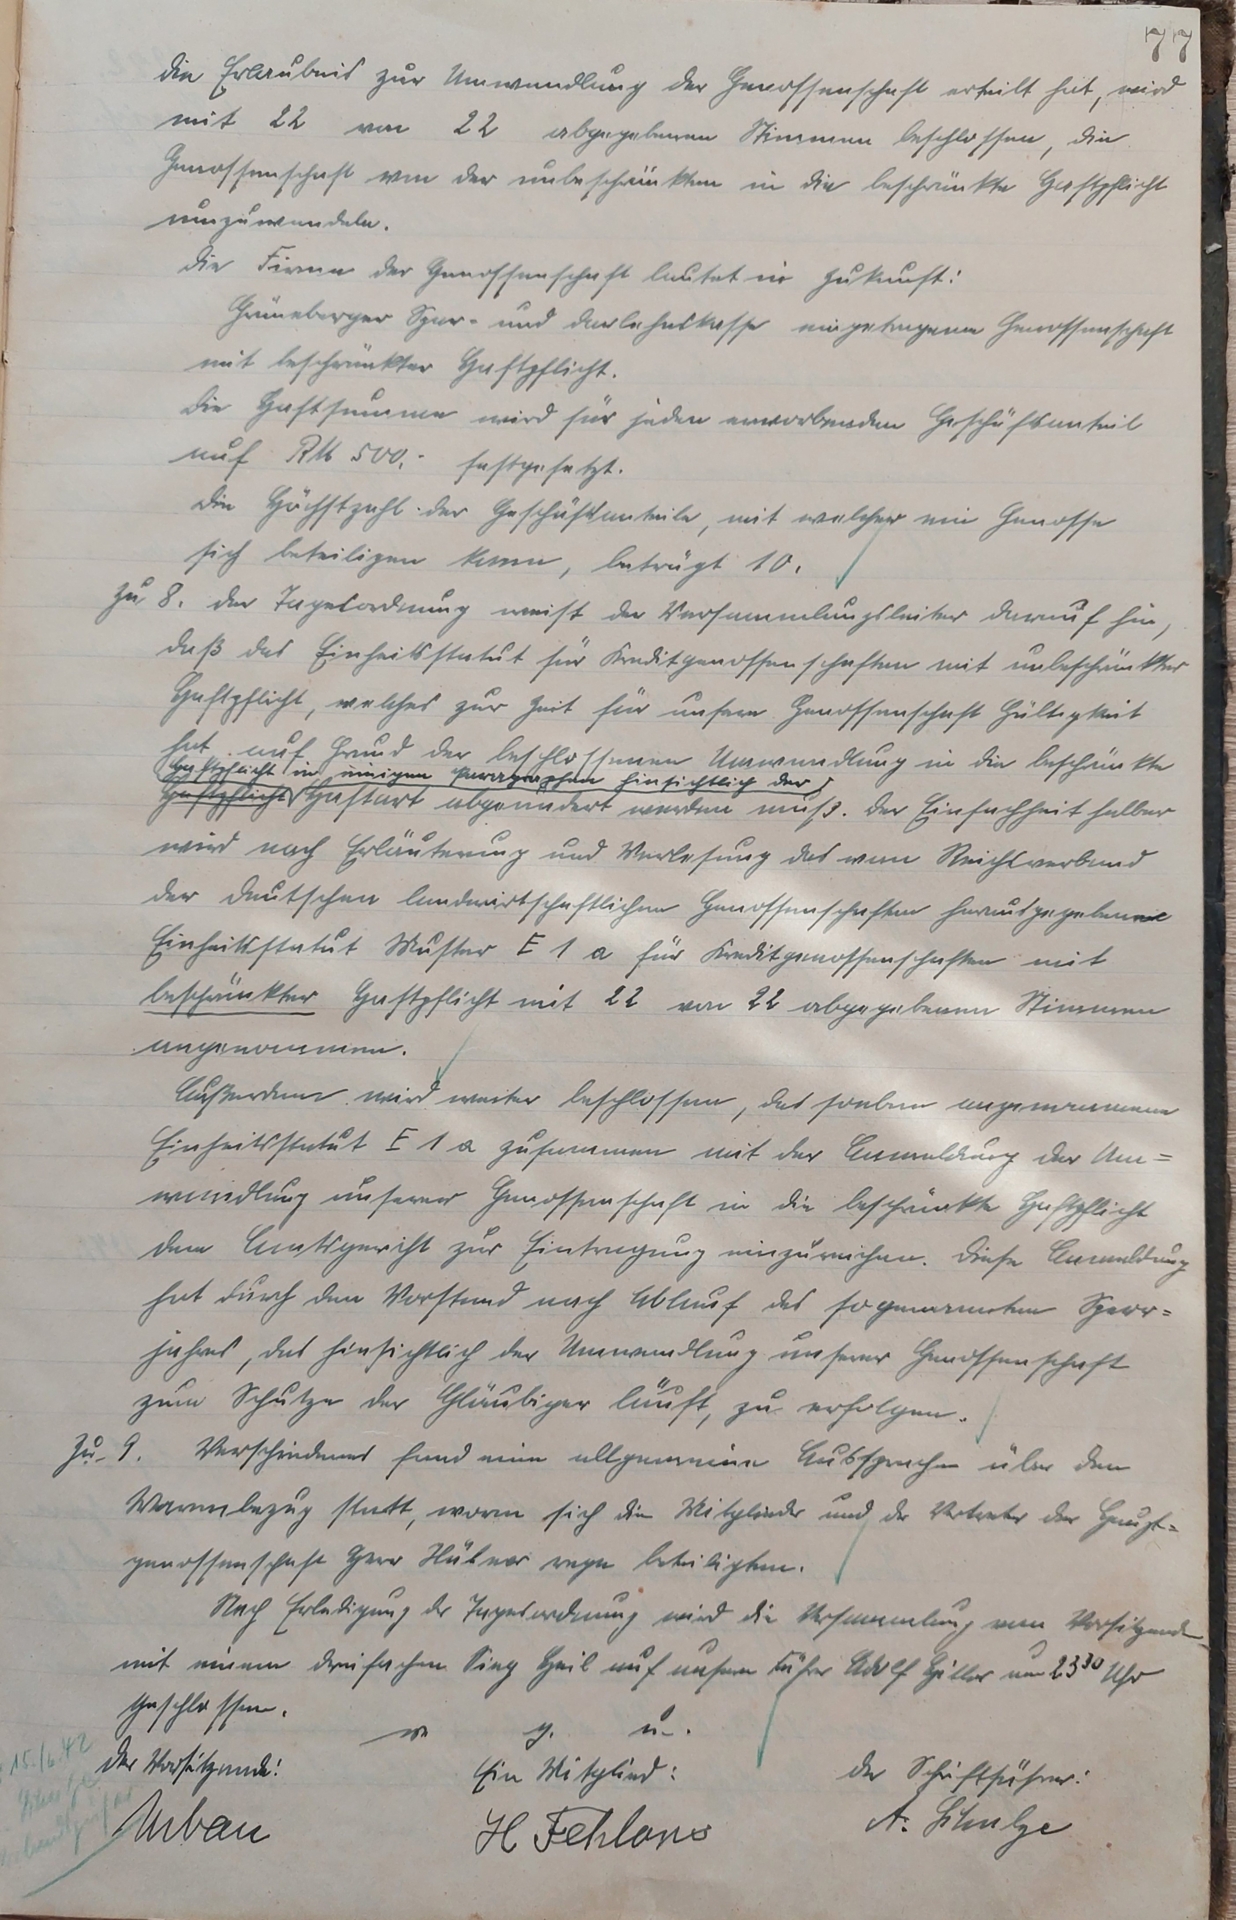 77
die Erlaubnis zur Umwandlung der Genossenschaft erteilt hat, wird
mit 22 von 22 abgegebenen Stimmen beschlossen, die
Genossenschaft von der unbeschränkten in die beschränkte Haftpflicht
umzuwandeln.
Die Firma der Genossenschaft lautet in Zukunft:
Grüneberger Spar- und Darlehnskasse eingetragene Genossenschaft
mit beschränkter Haftpflicht.
Die Haftsumme wird für jeden erworbenden Geschäftsanteil
auf RM 500,- festgesetzt.
Die Höchstzahl der Geschäftsanteile, mit welcher ein Genosse
sich beteiligen kann, beträgt 10.
Zu 8. der Tagesordnung weist der Versammlungsleiter darauf hin,
daß das Einheitsstatut für Kreditgenossenschaften mit unbeschränkter
Haftpflicht, welches zur Zeit für unsere Genossenschaft Gültigkeit
hat auf Grund der beschlossenen Umwandlung in die beschränkte
Haftpflicht in einigen Paragraphen hinsichtlich der
Haftpflicht Haftart abgeändert werden muß. Der Einfachheit halber
wird nach Erläuterung und Verlesung das vom Reichsverband
der deutschen landwirtschaftlichen Genossenschaften herausgegebene
Einheitsstatut Muster E 1 a für Kreditgenossenschaften mit
beschränkter Haftpflicht mit 22 von 22 abgegebenen Stimmen
angenommen.
Außerdem wird weiter beschlossen, das soeben angenommene
Einheitsstatut E 1 a zusammen mit der Anmeldung der Um=
wandlung unserer Genossenschaft in die beschränkte Haftpflicht
dem Amtsgericht zur Eintragung einzureichen. Diese Anmeldung
hat durch den Vorstand nach Ablauf des sogenannten Sperr=
jahres, das hinsichtlich der Umwandlung unserer Genossenschaft
zum Schutze der Gläubiger läuft, zu erfolgen.
Zu 9. Verschiedenes fand eine allgemeine Aussprache über den
Warenbezug statt, woran sich die Mitglieder und der Vertreter der Haupt=
genossenschaft Herr Hübner rege beteiligten.
Nach Erledigung der Tagesordnung wird die Versammlung vom Vorsitzenden
mit einem dreifachen Sieg Heil auf unsern Führer Adolf Hitler um 23³⁰ Uhr
geschlossen.
v. g. u.
Der Vorsitzende: Ein Mitglied: Der Schriftführer:
Urban H Fehlows A. Schulze
15./6.42